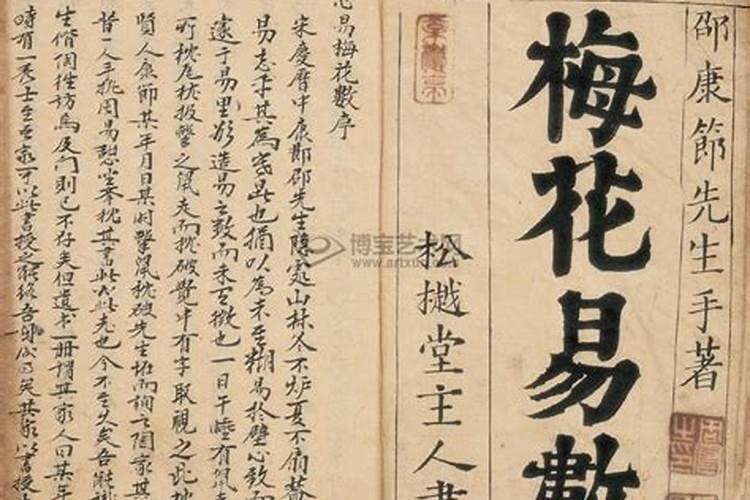 邵康節先生手著
梅花易數
松堂主人書
心易梅花數序
宋慶曆中康節邵先生隱處山林冬不炉夏不扇蓋
易忘乎其為寒暑也猶以為未至糊易於壁心致而
遂于易理欲造易之數而未有徵也一日午睡有鼠走
所枕瓦枕投擊之鼠走而枕破覺中有字取視之此枕
賢人康節某年月日某時擊鼠枕破先生恠而詢之陶家其
昔一人手執周易憇坐举枕其書此必此老也今不至久矣吾能識
生偕個往訪焉及門則已不存矣但遺書一冊謂其家人曰某年
時有一秀士至吾家可以此書授之能終吾身矣其家以書授
博宝艺术网
www.artxun.com